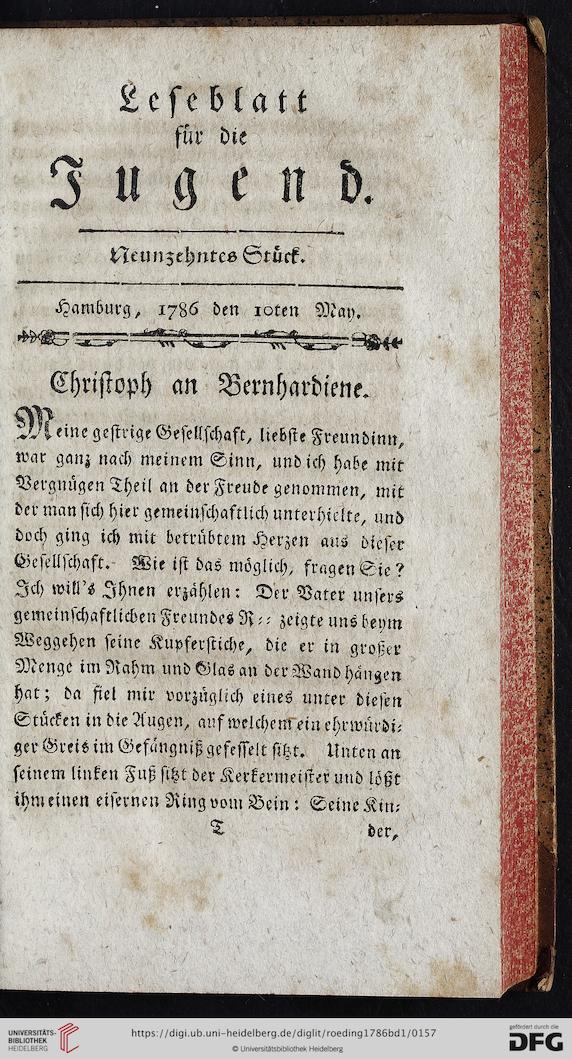 Leſeblatt
für die
Jugend.
Neunzehntes Stück.
Hamburg, 1786 den 10ten May.
Chriſtoph an Bernhardiene.
Meine geſtrige Geſellſchaft, liebſte Freundinn,
war ganz nach meinem Sinn, und ich habe mit
Vergnügen Theil an der Freude genommen, mit
der man ſich hier gemeinſchaftlich unterhielte, und
doch ging ich mit betrübtem Herzen aus dieſer
Geſellſchaft. Wie iſt das möglich, fragen Sie?
Ich will's Ihnen erzählen: Der Vater unſers
gemeinſchaftlichen Freundes R⸗⸗ zeigte uns beym
Weggehen ſeine Kupferſtiche, die er in großer
Menge im Rahm und Glas an der Wand hängen
hat; da fiel mir vorzüglich eines unter dieſen
Stücken in die Augen, auf welchem ein ehrwürdi⸗
ger Greis im Gefängniß gefeſſelt ſitzt. Unten an
ſeinem linken Fuß ſitzt der Kerkermeiſter und lößt
ihm einen eiſernen Ring vom Bein: Seine Kin⸗
T der,
UNIVERSITÄTS-
BIBLIOTHEK
HEIDELBERG
https://digi.ub.uni-heidelberg.de/diglit/roeding1786bd1/0157
© Universitätsbibliothek Heidelberg
gefördert durch die
DFG